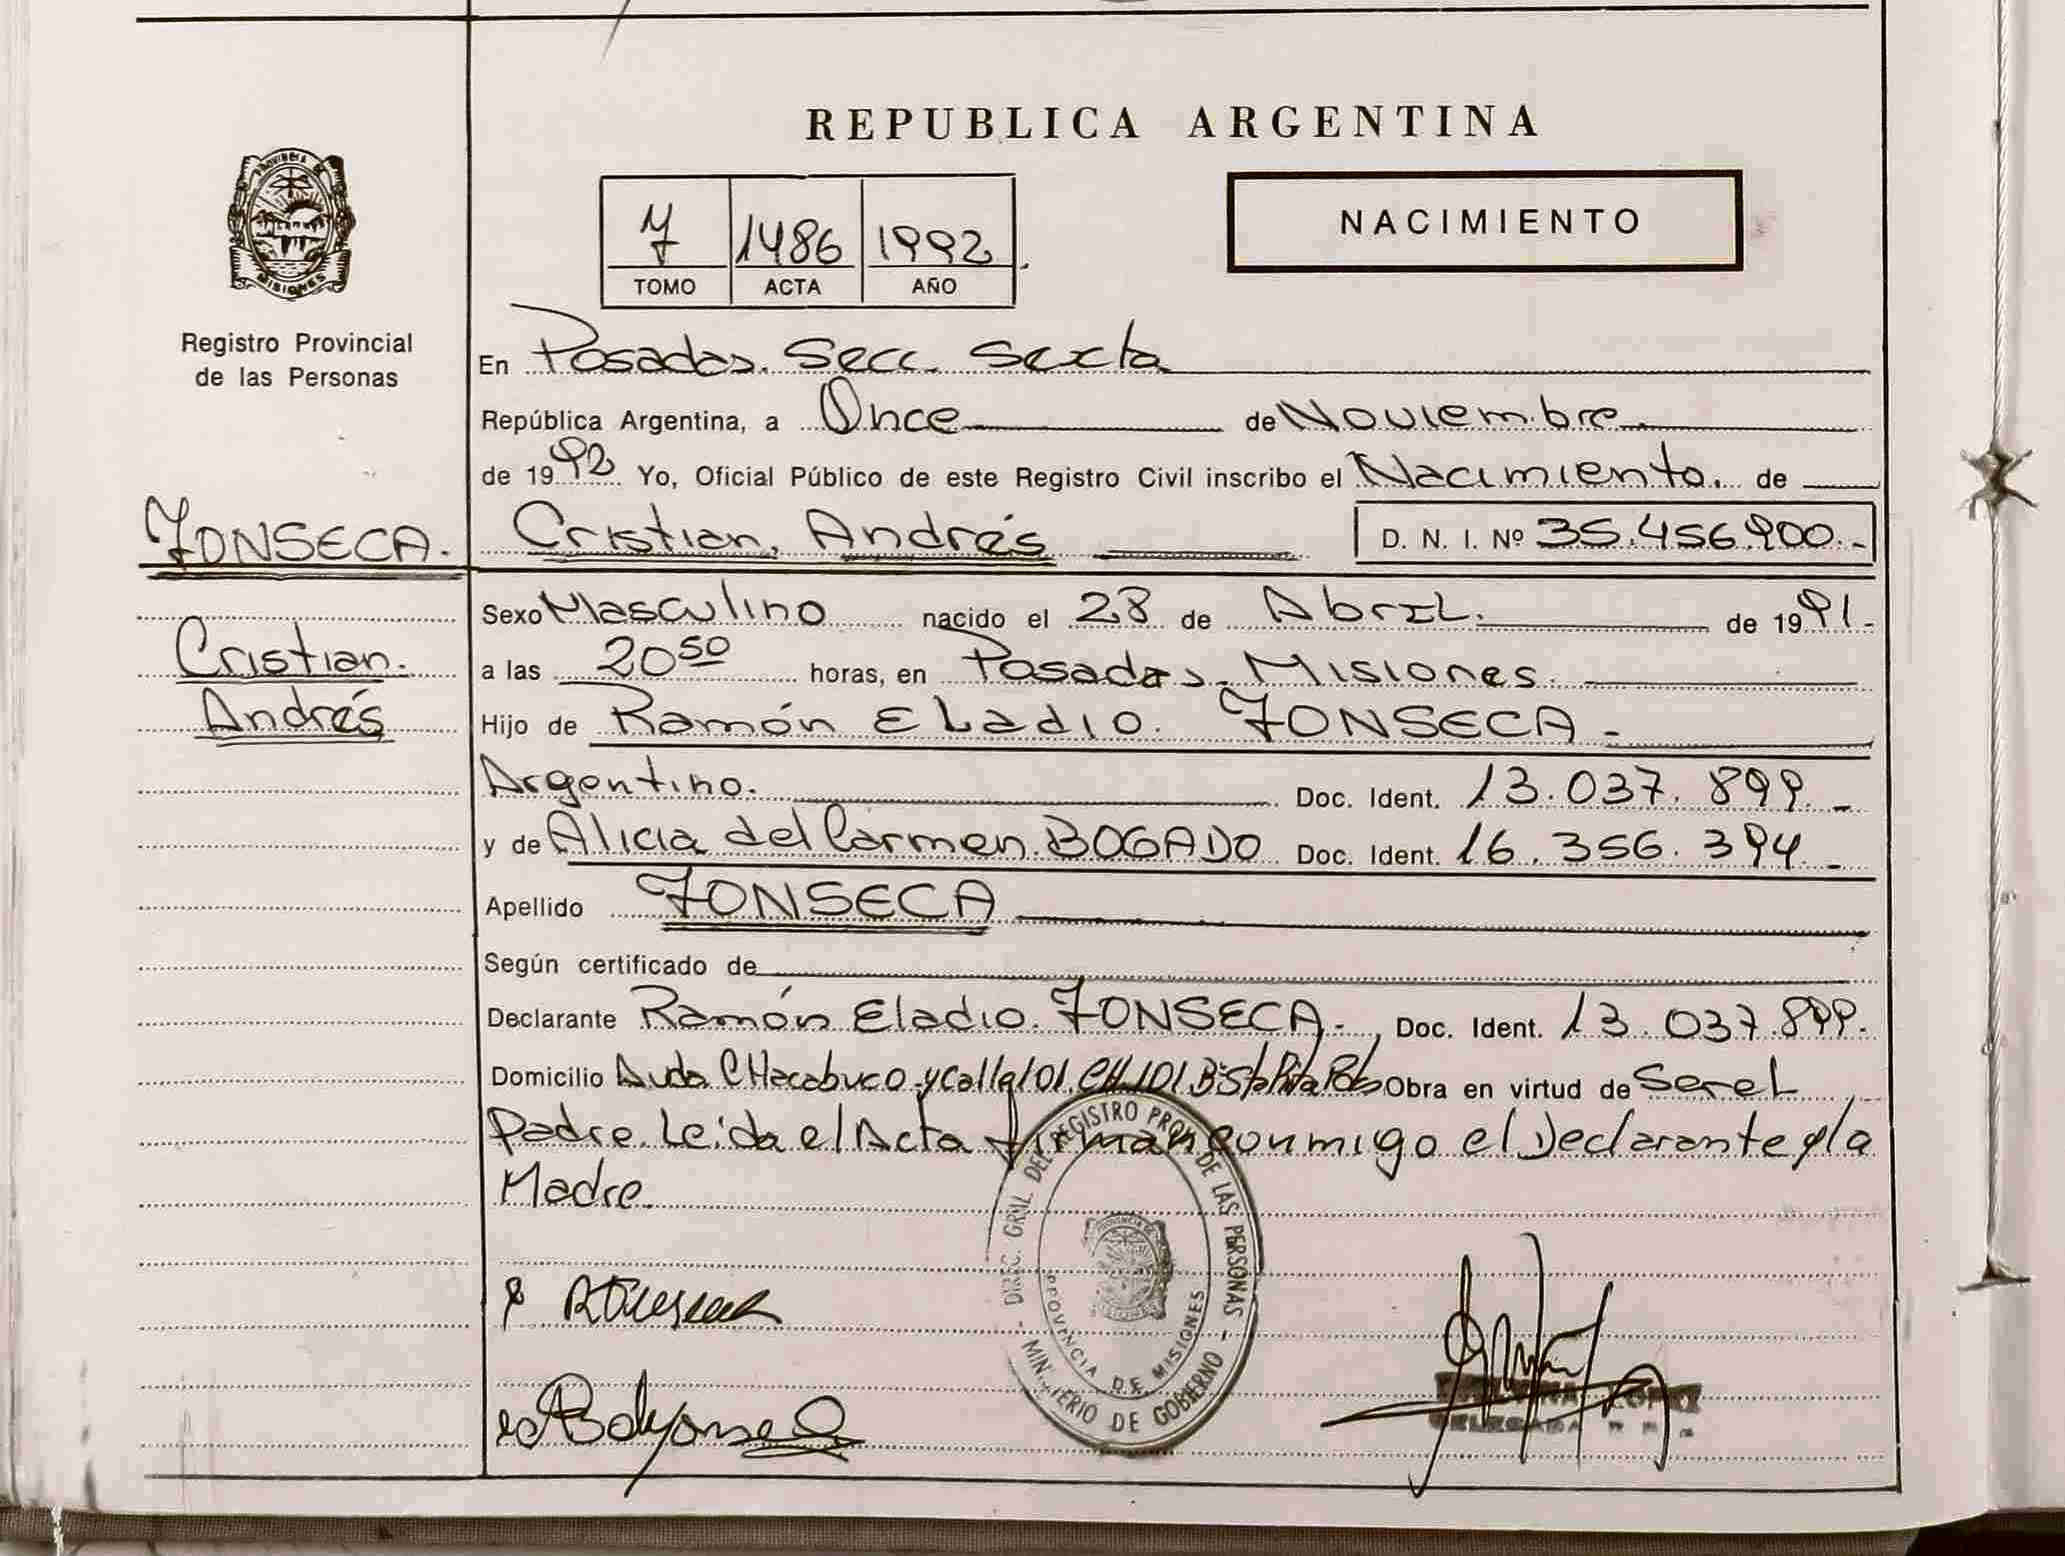 REPUBLICA ARGENTINA
PROVINCIA DE
MISIONES
Registro Provincial
de las Personas
7 1486 1992
TOMO ACTA AÑO
NACIMIENTO
En Posadas. Secc. Sexta
República Argentina, a Once de Noviembre
de 1992 Yo, Oficial Público de este Registro Civil inscribo el Nacimiento. de
FONSECA. Cristian, Andrés D. N. I. Nº 35.456.900.-
Sexo Masculino nacido el 28 de Abril. de 1991.
Cristian.
a las 20 50 horas, en Posadas. Misiones.
Andrés
Hijo de Ramón Eladio. FONSECA.-
Argentino. Doc. Ident. 13.037.899.-
y de Alicia del Carmen BOGADO Doc. Ident. 16.356.394.-
Apellido FONSECA
Según certificado de
Declarante Ramón Eladio FONSECA.- Doc. Ident. 13.037.899.
Domicilio Avda CHacabuco y Calle 101. CH.101.Bº Sta Rita Pdas Obra en virtud de Ser el
Padre. Leida el Acta firman conmigo el Declarante y la
Madre.
DIREC. GRAL. DEL REGISTRO PROV. DE LAS PERSONAS
PROVINCIA DE
PROVINCIA DE MISIONES
MINISTERIO DE GOBIERNO
LOPEZ
DELEGADA